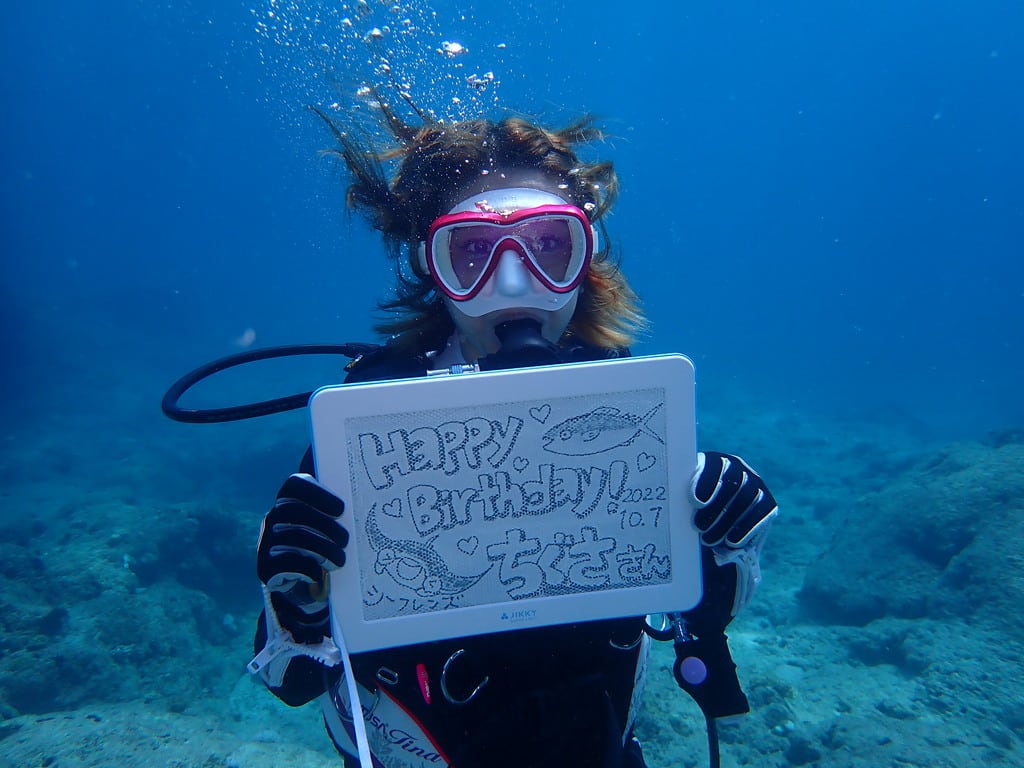 Happy
Birthday!
2022
10.7
ちぐささん
シーフレンズ
JIKKY
Tina